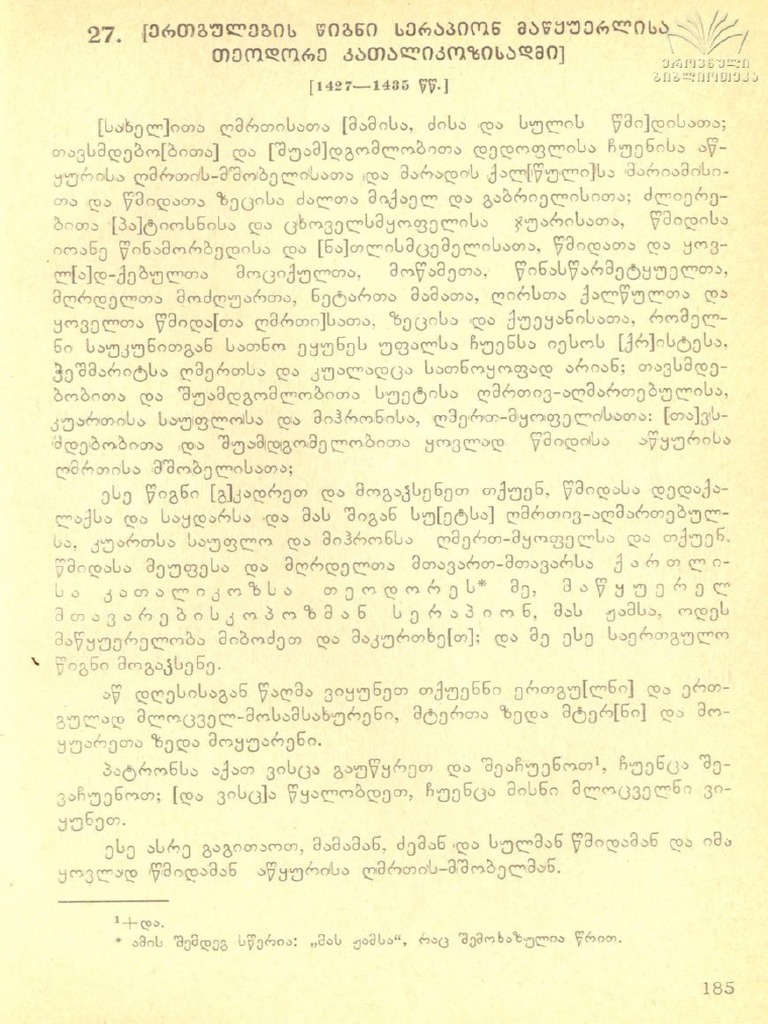 ეროვნული
ბიბლიოთეკა
27. [ერთგულების წიგნი სერაპიონ მაწყუერლისა
თეოდორე კათალიკოზისადმი]
[1427—1435 წწ.]
[სახელ]ითა ღმრთისათა [მამისა, ძისა და სულის წმი]დისათა;
თავსმდებო[ბითა] და [შუამ]დგომლობითა დედოფლისა ჩუენისა აწ-
ყურისა ღმრთის-მშობელისათა და მარადის ქალ[წული]სა მარიამისი-
თა და წმიდათა ზეცისა ძალთა მიქაელ და გაბრიელისითა; ძლიერე-
ბითა [პა]ტიოსნისა და ცხოველსმყოფელისა ჯუარისათა, წმიდისა
იოანე წინამორბედისა და [ნა]თლისმცემელისათა, წმიდათა და ყოვ-
ლ[ა]დ-ქებულთა მოციქულთა, მოწამეთა, წინასწარმეტყუელთა,
მღრდელთა მოძღუართა, ნეტართა მამათა, ღირსთა ქალწულთა და
ყოველთა წმიდა[თა ღმრთი]სათა, ზეცისა და ქუეყანისათა, რომელ-
ნი საუკუნითგან სათნო ეყუნეს უფალსა ჩუენსა იესოს [ქრ]ისტესა,
ჭეშმარიტსა ღმერთსა და კუალადცა სათნოყოფად არიან; თავსმდე-
ბობითა და შუამდგომლობითა სუეტისა ღმრთივ-აღმართებულისა,
კუართისა საუფლოსა და მიჰრონისა, ღმერთ-მყოფელისათა: [თა]ვს-
მდებობითა და შუამდგომელობითა ყოვლად წმიდისა აწყურისა
ღმრთისა მშობელისათა;
ესე წიგნი [გ]კადრეთ და მოგაჴსენეთ თქუენ, წმიდასა დედაქა-
ლაქსა და საყდარსა და მას შიგან სუ[ეტსა] ღმრთივ-აღმართებულ-
სა, კუართსა საუფლო და მიჰრონსა ღმერთ-მყოფელსა და თქუენ,
წმიდასა მეუფესა და მღრდელთა მთავართ-მთავარსა ქართლი-
სა კათალიკოზსა თეოდორეს* მე, მაწყუერელ
მთავარებისკოპოზმან სერაპიონ, მას ჟამსა, ოდეს
მაწყუერელობა მიბოძეთ და მაკურთხე[თ]; და მე ესე საერთგულო
წიგნი მოგაჴსენე.
აწ დღესისაგან წაღმა ვიყუნეთ თქუენნი ერთგუ[ლნი] და ერთ-
გულად მლოცველ-მოსამსახურენი, მტერთა ზედა მტერ[ნი] და მო-
ყუარეთა ზედა მოყუარენი.
პატრონსა აქათ ვისცა გაუწყრეთ და შეაჩუენოთ¹, ჩუენცა შე-
ვაჩუენოთ; [და ვისც]ა წყალობდეთ, ჩუენცა მისნი მლოცველნი ვი-
ყუნეთ.
ესე ასრე გაგითაოთ, მამამან, ძემან და სულმან წმიდამან და იმა
ყოვლად წმიდამან აწყურისა ღმრთის-მშობელმან.
¹+და.
* ამის შემდეგ სწერია: „მას ჟამსა“, რაც შემოხაზულია წრით.
185